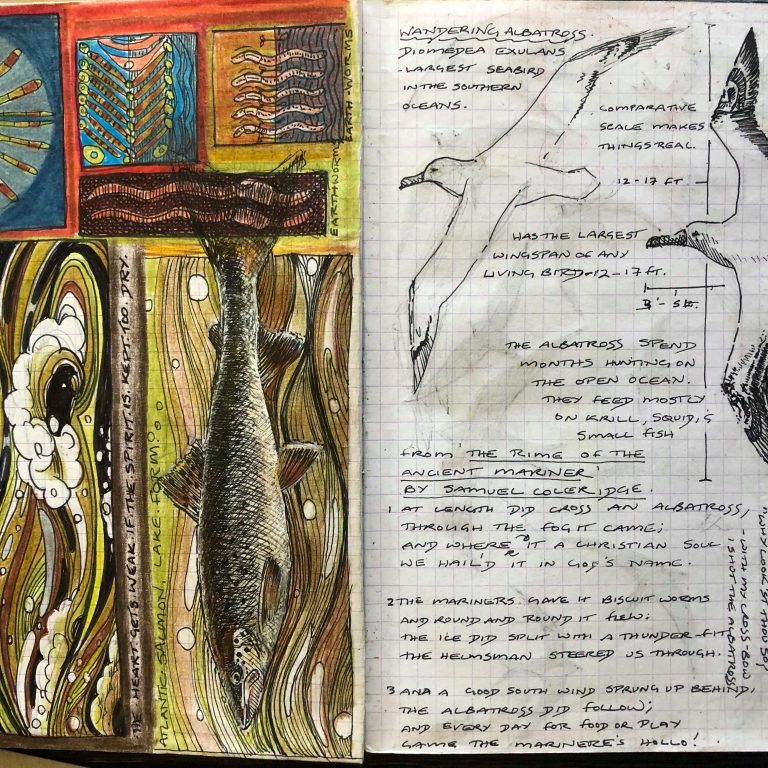 EARTH-WORMS
EARTHWORMS
THE HEART GETS WEAK IF THE SPIRIT IS KEPT TOO DRY.
ATLANTIC SALMON, LAKE FORM!
WANDERING ALBATROSS.
DIOMEDEA EXULANS
-LARGEST SEABIRD
IN THE SOUTHERN
OCEANS.
COMPARATIVE
SCALE MAKES
THINGS REAL.
12-17 FT
HAS THE LARGEST
WINGSPAN OF ANY
LIVING BIRD-12-17 FT.
3'-5 ft.
THE ALBATROSS SPEND
MONTHS HUNTING ON
THE OPEN OCEAN.
THEY FEED MOSTLY
ON KRILL, SQUID, &
SMALL FISH
FROM 'THE RIME OF THE
ANCIENT MARINER'
BY SAMUEL COLERIDGE.
1 AT LENGTH DID CROSS AN ALBATROSS,
THROUGH THE FOG IT CAME;
AND WHERE IT A CHRISTIAN SOUL
WE HAIL'D IT IN GOD'S NAME.
2 THE MARINERS GAVE IT BISCUIT WORMS
AND ROUND AND ROUND IT FLEW:
THE ICE DID SPLIT WITH A THUNDER-FIT
THE HELMSMAN STEERED US THROUGH.
3 ANA A GOOD SOUTH WIND SPRUNG UP BEHIND,
THE ALBATROSS DID FOLLOW;
AND EVERY DAY FOR FOOD OR PLAY
CAME THE MARINERE'S HOLLO!
"WHY LOOK'ST THOU SO?
-WITH MY CROSS-BOW
I SHOT THE ALBATROSS